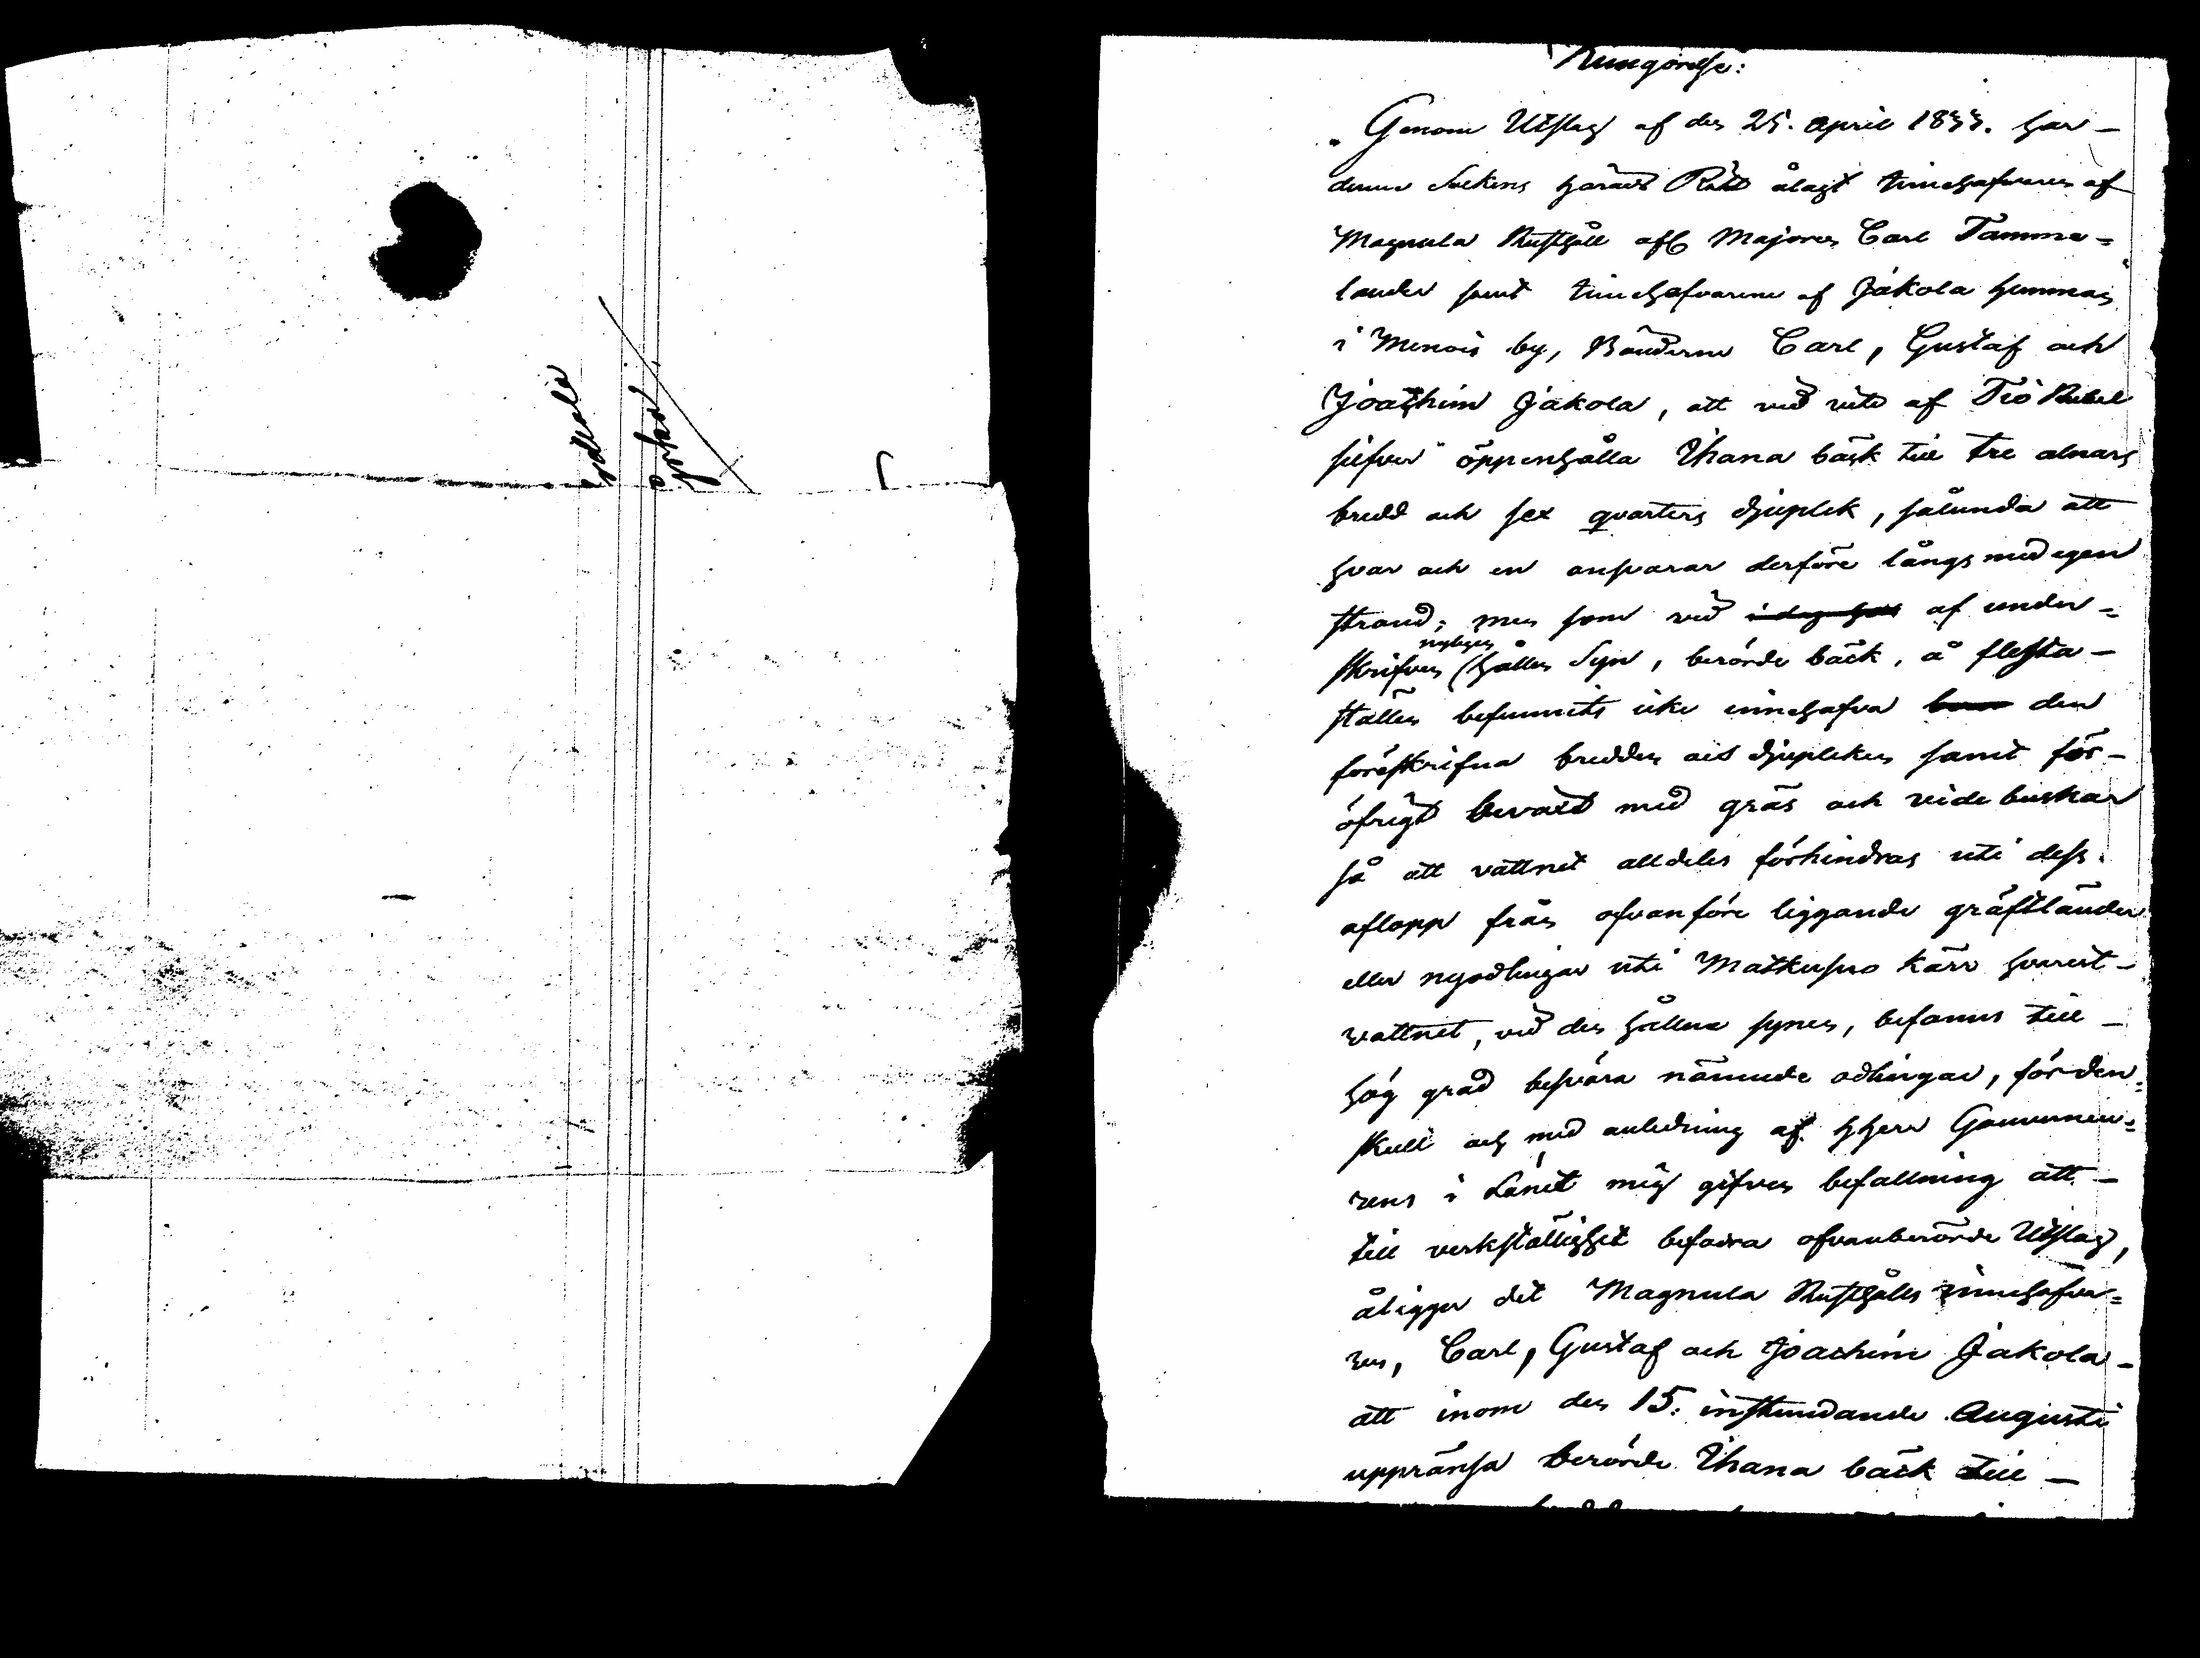 Kungörelse:
Genom Utslag af den 25. April 1833. har
denne Sockens Härads Rätt ålagt innehafvaren af
Magnula Rusthåll afl Majoren Carl Tamme=
lander samt innehafvarene af Jakola hemman
i Menois by, Bönderne Carl, Gustaf och
Joachim Jakola, att vid vite af Tio Rubel
silfver öppenhålla Uhana bäck till tre alnars
bredd och sex qvarters djuplek, sålunda att
hvar och en ansvarar derföre långs med egen
strand; men som vid af under=
skrifven nyligen hållen Syn, berörde bäck, å flesta
ställen befunnits icke innehafva den
föreskrifna bredden och djupleken samt för-
öfrigt beväxt med gräs och videbuskar
så att vattnet alldeles förhindras uti dess
aflopp från ofvanföre liggande gräftländer
eller nyodlingar uti Matkusuo kärr hvarest
vattnet, vid den hållna synen, befanns till
hög grad besvära nämnde odlingar, förden=
skull och med anledning af HHerr Gouverneu=
rens i Länet mig gifven befallning att
till verkställighet befodra ofvanberörde Utslag,
åligger det Magnula Rusthålls innehafva=
ren, Carl, Gustaf och Joachim Jakola
att inom den 15. instundande Augusti
upprensa berörde Uhana bäck till